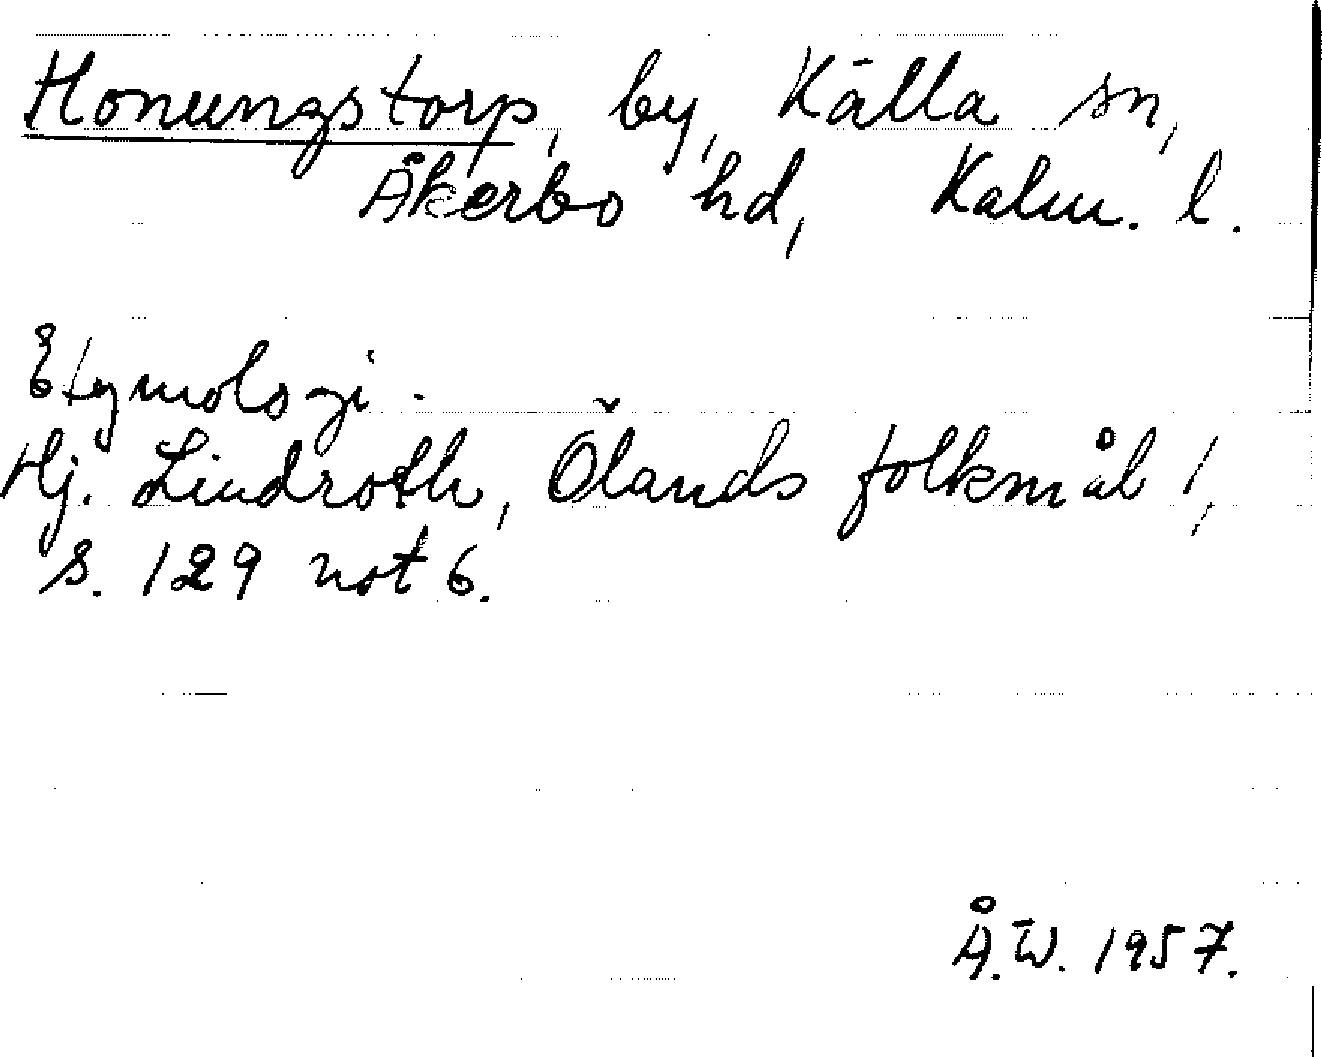 Honungstorp, by, Källa sn,
Åkerbo hd, Kalm. l.
Etymologi.
Hj. Lindroth, Ölands folkmål 1,
s. 129 not 6.
Å.W. 1957.